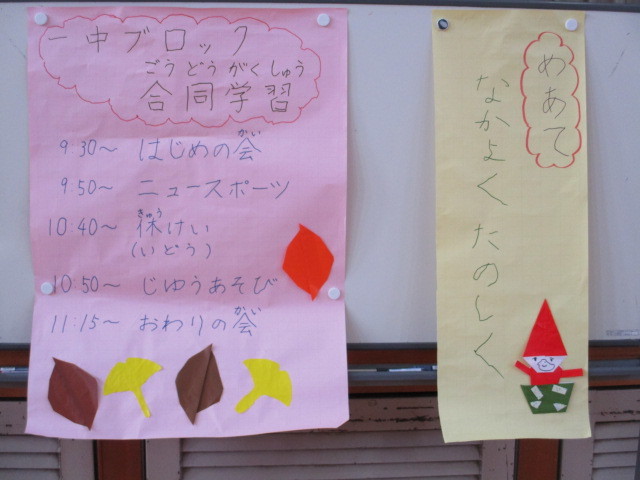 一中ブロック
ごうどうがくしゅう
合同学習
9:30～ はじめの会
かい
9:50～ ニュースポーツ
10:40～ 休けい
きゅう
(いどう)
10:50～ じゆうあそび
11:15～ おわりの会
かい
めあて
なかよく たのしく